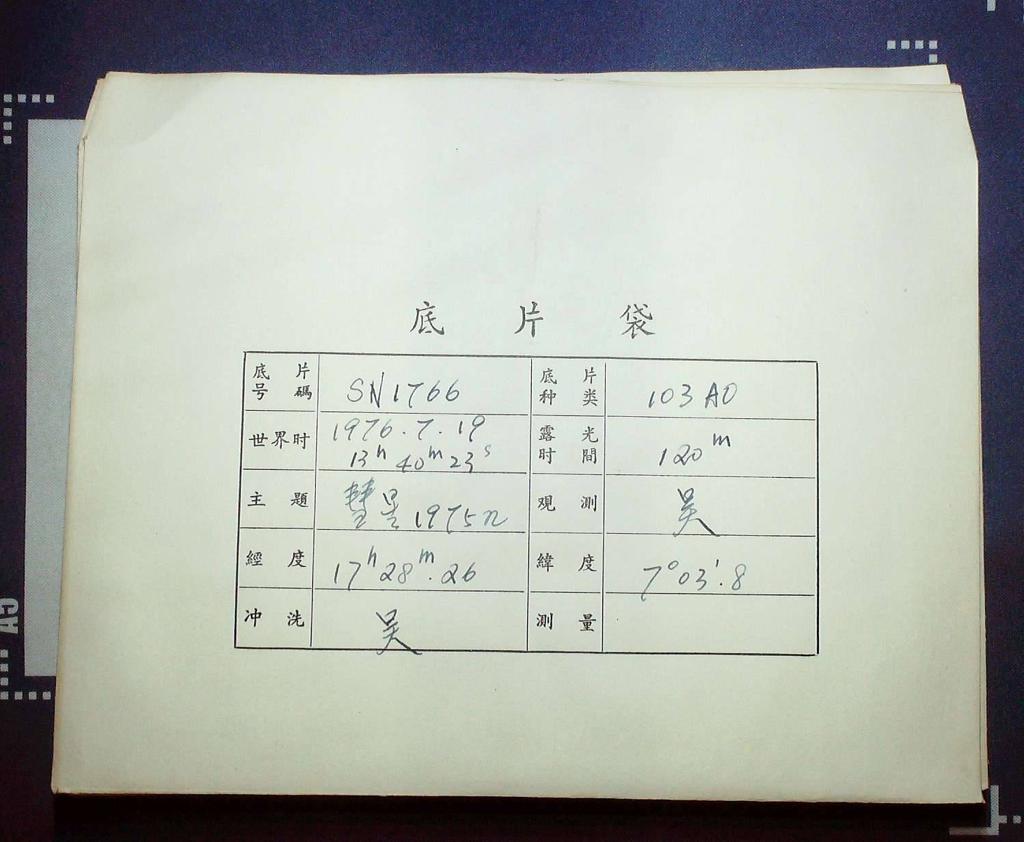 底片袋
底片号碼 SN1766 底片种类 103AO
世界时 1976.7.19 13h 40m 23s 露光时間 120m
主題 彗星 1975n 观測 吴
經度 17h 28m.26 緯度 7°03'.8
冲洗 吴 測量